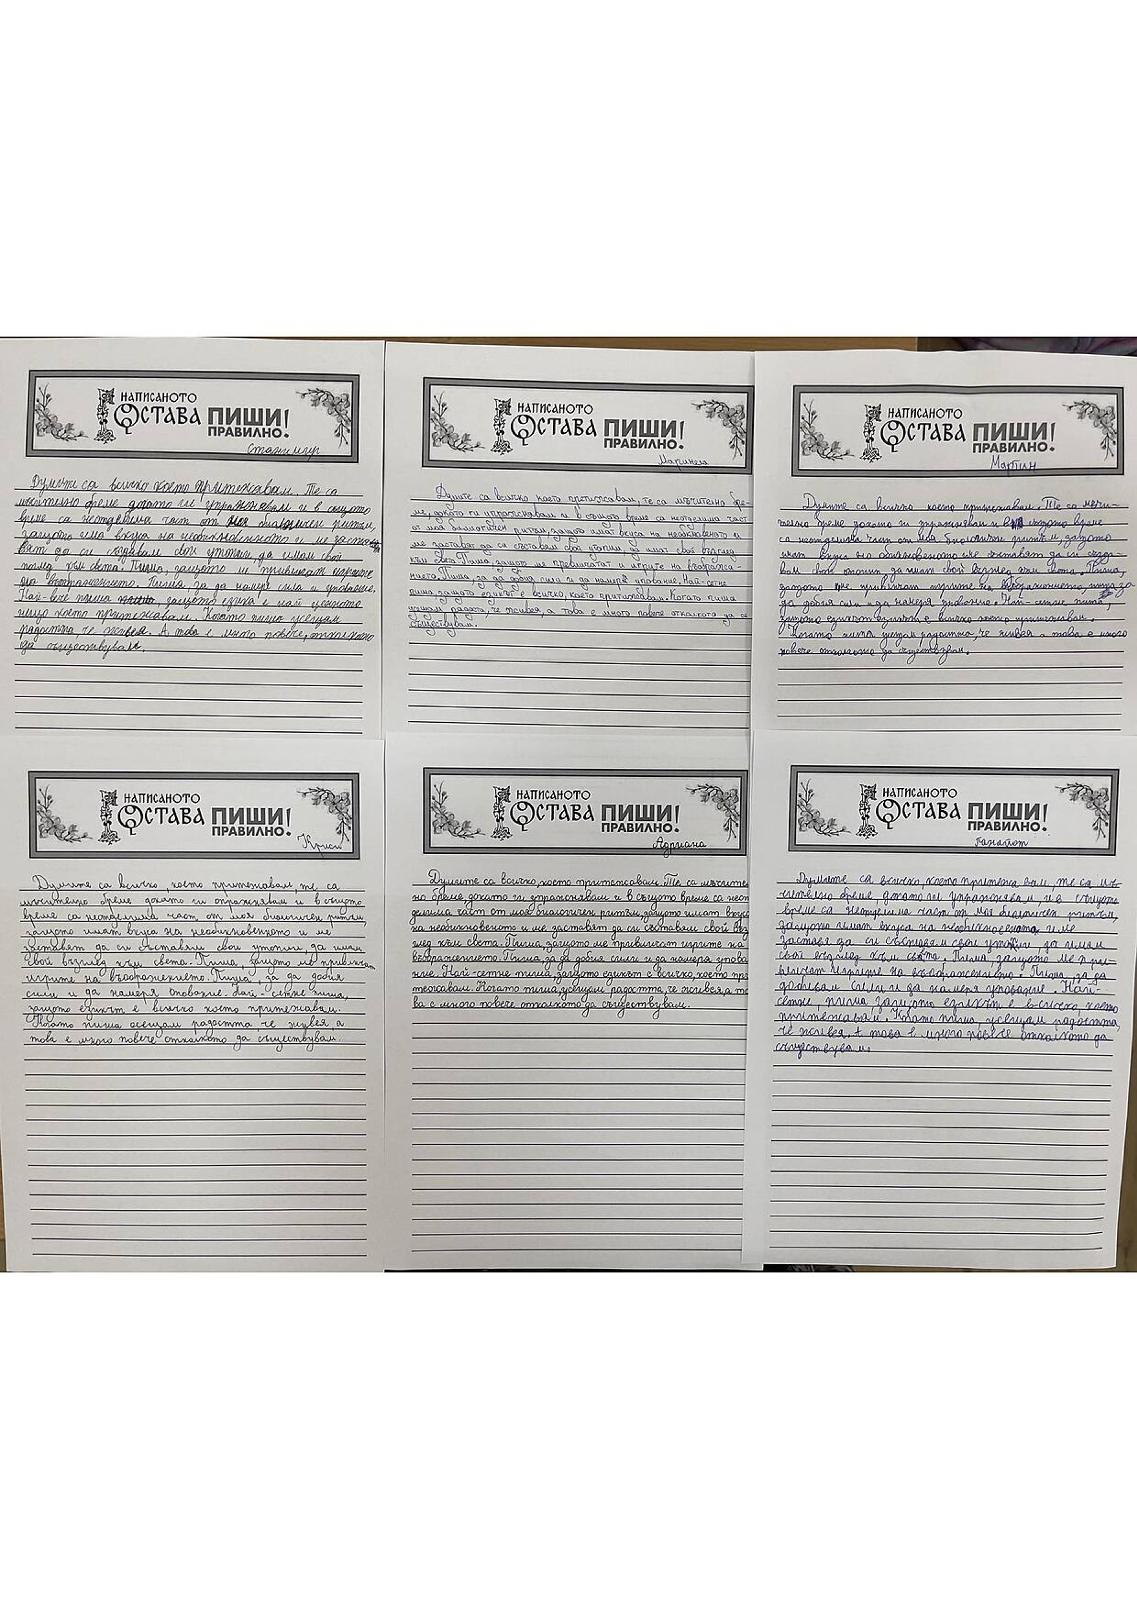 НАПИСАНОТО
ОСТАВА ПИШИ!
ПРАВИЛНО!
Станимир
Думите са всичко което притежавам. Те са
мъчително бреме докато ги упражнявам и в същото
време са неотделима част от моя биологичен ритъм,
защото има вкуса на необикновеното и ме
да си създавам свои утопии, да имам свой
поглед към света. Пиша, защото м привличат игрите
на въображението. Пиша, за да намеря сила и упование.
Най-вече пиша защото езика е най ценното
нещо което притежавам. Когато пиша усещам
радостта че живея. А това е много повече, отколкото
да съществувам.
НАПИСАНОТО
ОСТАВА ПИШИ!
ПРАВИЛНО!
Маринела
Думите са всичко което притижавам, те са мъчително бре-
ме, докато ги упражнявам и в същото време са неотделима част
от моя биологичен ритъм, защото имат вкуса на необикновеното и
ме заставят да си съставям свои утопии, да имат свой възглед
към света. Пиша, защото ме превличат и игрите на въображе-
нието. Пиша, за да добия сила и да намеря упование. Най-сетне
пиша, защото езикът е всичко, което притижавам. Когато пиша
усещам радостта, че живея, а това е много повече отколкото да се
съществувам.
НАПИСАНОТО
ОСТАВА ПИШИ!
ПРАВИЛНО!
Мартин
Думите са всичко което притежавам. Те са мъчи-
телно бреме докато ги упражнявам и в същото време
са неотделима част от моя биологичен ритъм, защото
имат вкуса на обикновеното ме заставят да си създа-
вам свои утопии да имам свой възглед към света. Пиша,
защото ме привличат игрите на въображението, пиша за
да добия сили и да намеря упование. Най-сетне пиша,
защото езикът е всичко което притежавам.
Когато пиша усещам радостта, че живея а това е много
повече отколкото да съществувам.
НАПИСАНОТО
ОСТАВА ПИШИ!
ПРАВИЛНО!
Криси
Думите са всичко, което притежавам, те са
мъчително бреме докато ги опражнявам и в същото
време са неотделима част от моя биологичен ритъм,
защото имат вкуса на необикновеното и ме
заставят да си съставям свои утопии да имам
свой възглед към света. Пиша, защото ме привличат
игрите на въображението. Пиша, за да добия
сили и да намеря опование. Най-сетне пиша,
защото езикът е всичко което притежавам.
Когато пиша осещам радостта че живея а
това е много повече отколкото да съществувам.
НАПИСАНОТО
ОСТАВА ПИШИ!
ПРАВИЛНО!
Адриана
Думите са всичко, което притежавам. Те са мъчител
но бреме докато ги упражнявам и в същото време са неот
делима част от моя биологичен ритъм, защото имат вкуса
на необикновеното и ме заставят да си съставям свой въз
глед към света. Пиша, защото ме привличат игрите на
въображението. Пиша, за да добия сили и да намеря упова
ние. Най-сетне пиша, защото езикът е всичко, което при
тежавам. Когато пиша, усещам радостта, че живея, а то
ва е много повече отколкото да съществувам.
НАПИСАНОТО
ОСТАВА ПИШИ!
ПРАВИЛНО!
Панайот
Думите са всичко, което притежавам, те са мъ-
чително бреме, докато ги упражнявам и в същото
време са неотделима част от моя биологичен ритъм,
защото имат вкуса на необикновеното и ме
заставя да си съставям свои утопии да имам
свой възглед към света. Пиша, защото ме при-
вличат игрите на въображението. Пиша, за да
добивам сили и да намеря упование. Най-
сетне, пиша защото езикът е всичко, което
притежавам. Когато пиша, усещам радостта,
че живея. А това е много повече отколкото да
съществувам.